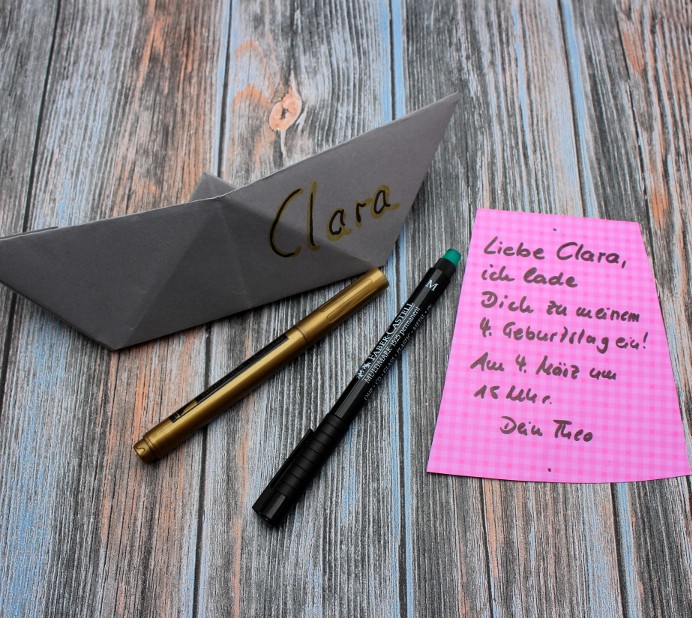 Clara
FABER CASTELL
MULTIMARK 1525 permanent
M
Liebe Clara,
ich lade
Dich zu meinem
4. Geburtstag ein!
Am 4. März um
15 Uhr.
Dein Theo